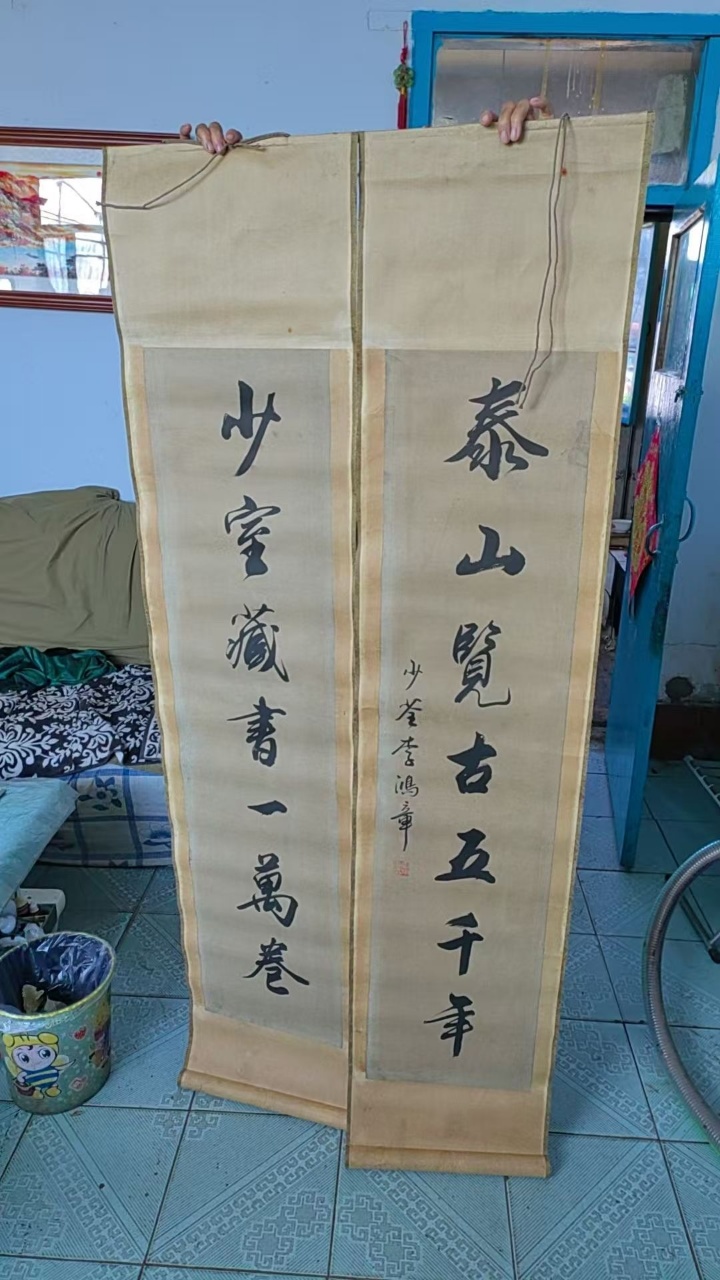 泰山覽古五千年
少荃李鴻章
少室藏書一萬卷